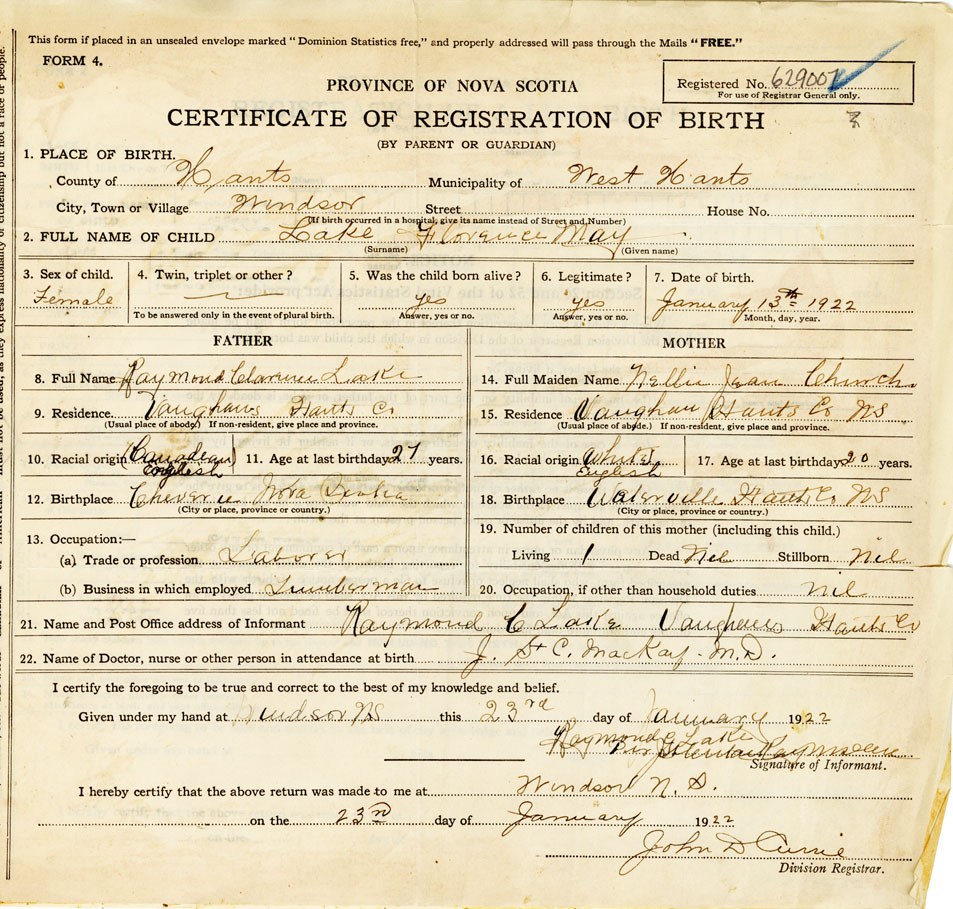 This form if placed in an unsealed envelope marked "Dominion Statistics free," and properly addressed will pass through the Mails "FREE."
FORM 4.
Registered No. 629007
For use of Registrar General only.
PROVINCE OF NOVA SCOTIA
CERTIFICATE OF REGISTRATION OF BIRTH
(BY PARENT OR GUARDIAN)
1. PLACE OF BIRTH.
County of Hants Municipality of West Hants
City, Town or Village Windsor Street House No.
(If birth occurred in a hospital, give its name instead of Street and Number)
2. FULL NAME OF CHILD Lake Florence May
(Surname) (Given name)
3. Sex of child. 4. Twin, triplet or other? 5. Was the child born alive? 6. Legitimate? 7. Date of birth.
Female yes yes January 13th 1922
To be answered only in the event of plural birth. Answer, yes or no. Answer, yes or no. Month, day, year.
FATHER MOTHER
8. Full Name Raymond Clarence Lake 14. Full Maiden Name Nellie Jean Church
9. Residence Vaughans Hants Co 15. Residence Vaughan Hants Co NS
(Usual place of abode.) If non-resident, give place and province. (Usual place of abode.) If non-resident, give place and province.
10. Racial origin (Canadean) English 11. Age at last birthday 27 years. 16. Racial origin (White) English 17. Age at last birthday 20 years.
12. Birthplace Cheverie Nova Scotia 18. Birthplace Waterville Hants Co NS
(City or place, province or country.) (City or place, province or country.)
13. Occupation:— 19. Number of children of this mother (including this child.)
(a) Trade or profession Laborer Living 1 Dead Nil Stillborn Nil
(b) Business in which employed Lumberman 20. Occupation, if other than household duties nil
21. Name and Post Office address of Informant Raymond C Lake Vaughans Hants Co
22. Name of Doctor, nurse or other person in attendance at birth J. St C. MacKay M.D.
I certify the foregoing to be true and correct to the best of my knowledge and belief.
Given under my hand at Windsor NS this 23rd day of January 1922
Raymond C Lake
Per
Signature of Informant.
I hereby certify that the above return was made to me at Windsor N.S.
on the 23rd day of January 1922
John D Currie
Division Registrar.